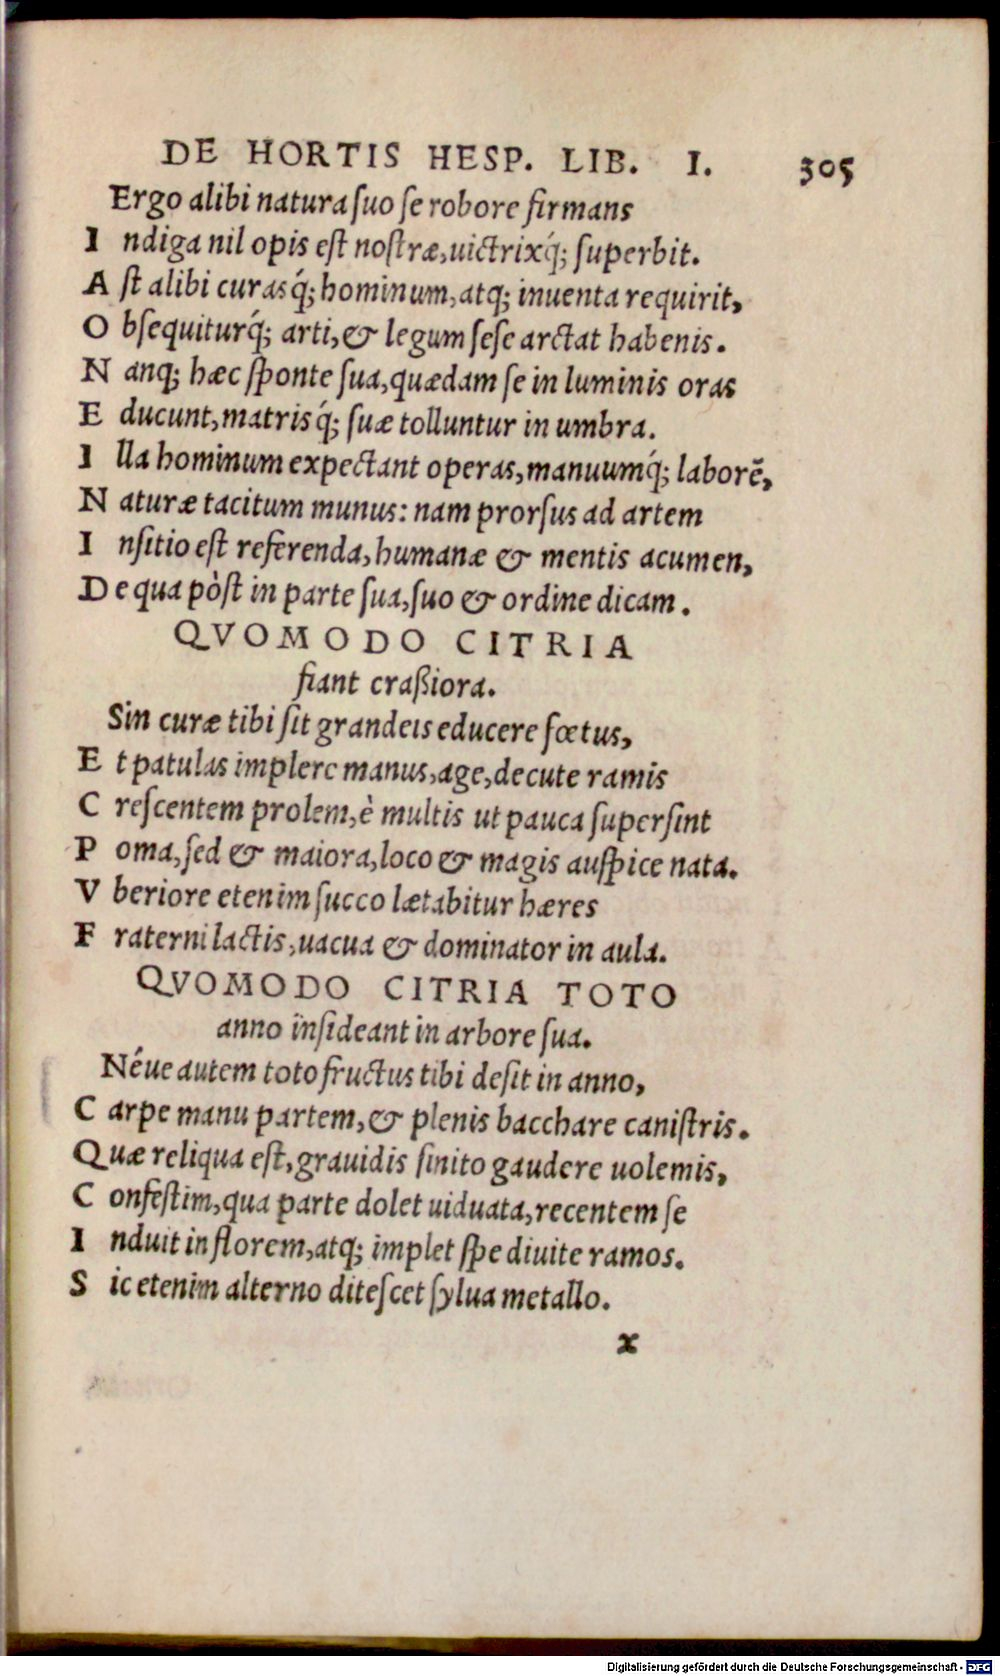 DE HORTIS HESP. LIB. I. 305
Ergo alibi natura ſuo ſe robore firmans
I ndiga nil opis eſt noſtræ, uictrixq́; ſuperbit.
A ſt alibi curasq́; hominum, atq; inuenta requirit,
O bſequiturq́; arti, & legum ſeſe arctat habenis.
N anq; hæc ſponte ſua, quædam ſe in luminis oras
E ducunt, matrisq́; ſuæ tolluntur in umbra.
I lla hominum expectant operas, manuumq́; laborē,
N aturæ tacitum munus: nam prorſus ad artem
I nſitio eſt referenda, humanæ & mentis acumen,
D e qua pòſt in parte ſua, ſuo & ordine dicam.
QVOMODO CITRIA
fiant craßiora.
Sin curæ tibi ſit grandeis educere fœtus,
E t patulas implere manus, age, decute ramis
C reſcentem prolem, è multis ut pauca ſuperſint
P oma, ſed & maiora, loco & magis auſpice nata.
V beriore etenim ſucco lætabitur hæres
F raterni lactis, uacua & dominator in aula.
QVOMODO CITRIA TOTO
anno inſideant in arbore ſua.
Néue autem toto fructus tibi deſit in anno,
C arpe manu partem, & plenis bacchare caniſtris.
Quæ reliqua eſt, grauidis ſinito gaudere uolemis,
C onfeſtim, qua parte dolet uiduata, recentem ſe
I nduit in florem, atq; implet ſpe diuite ramos.
S ic etenim alterno diteſcet ſylua metallo.
x
Digitalisierung gefördert durch die Deutsche Forschungsgemeinschaft - DFG